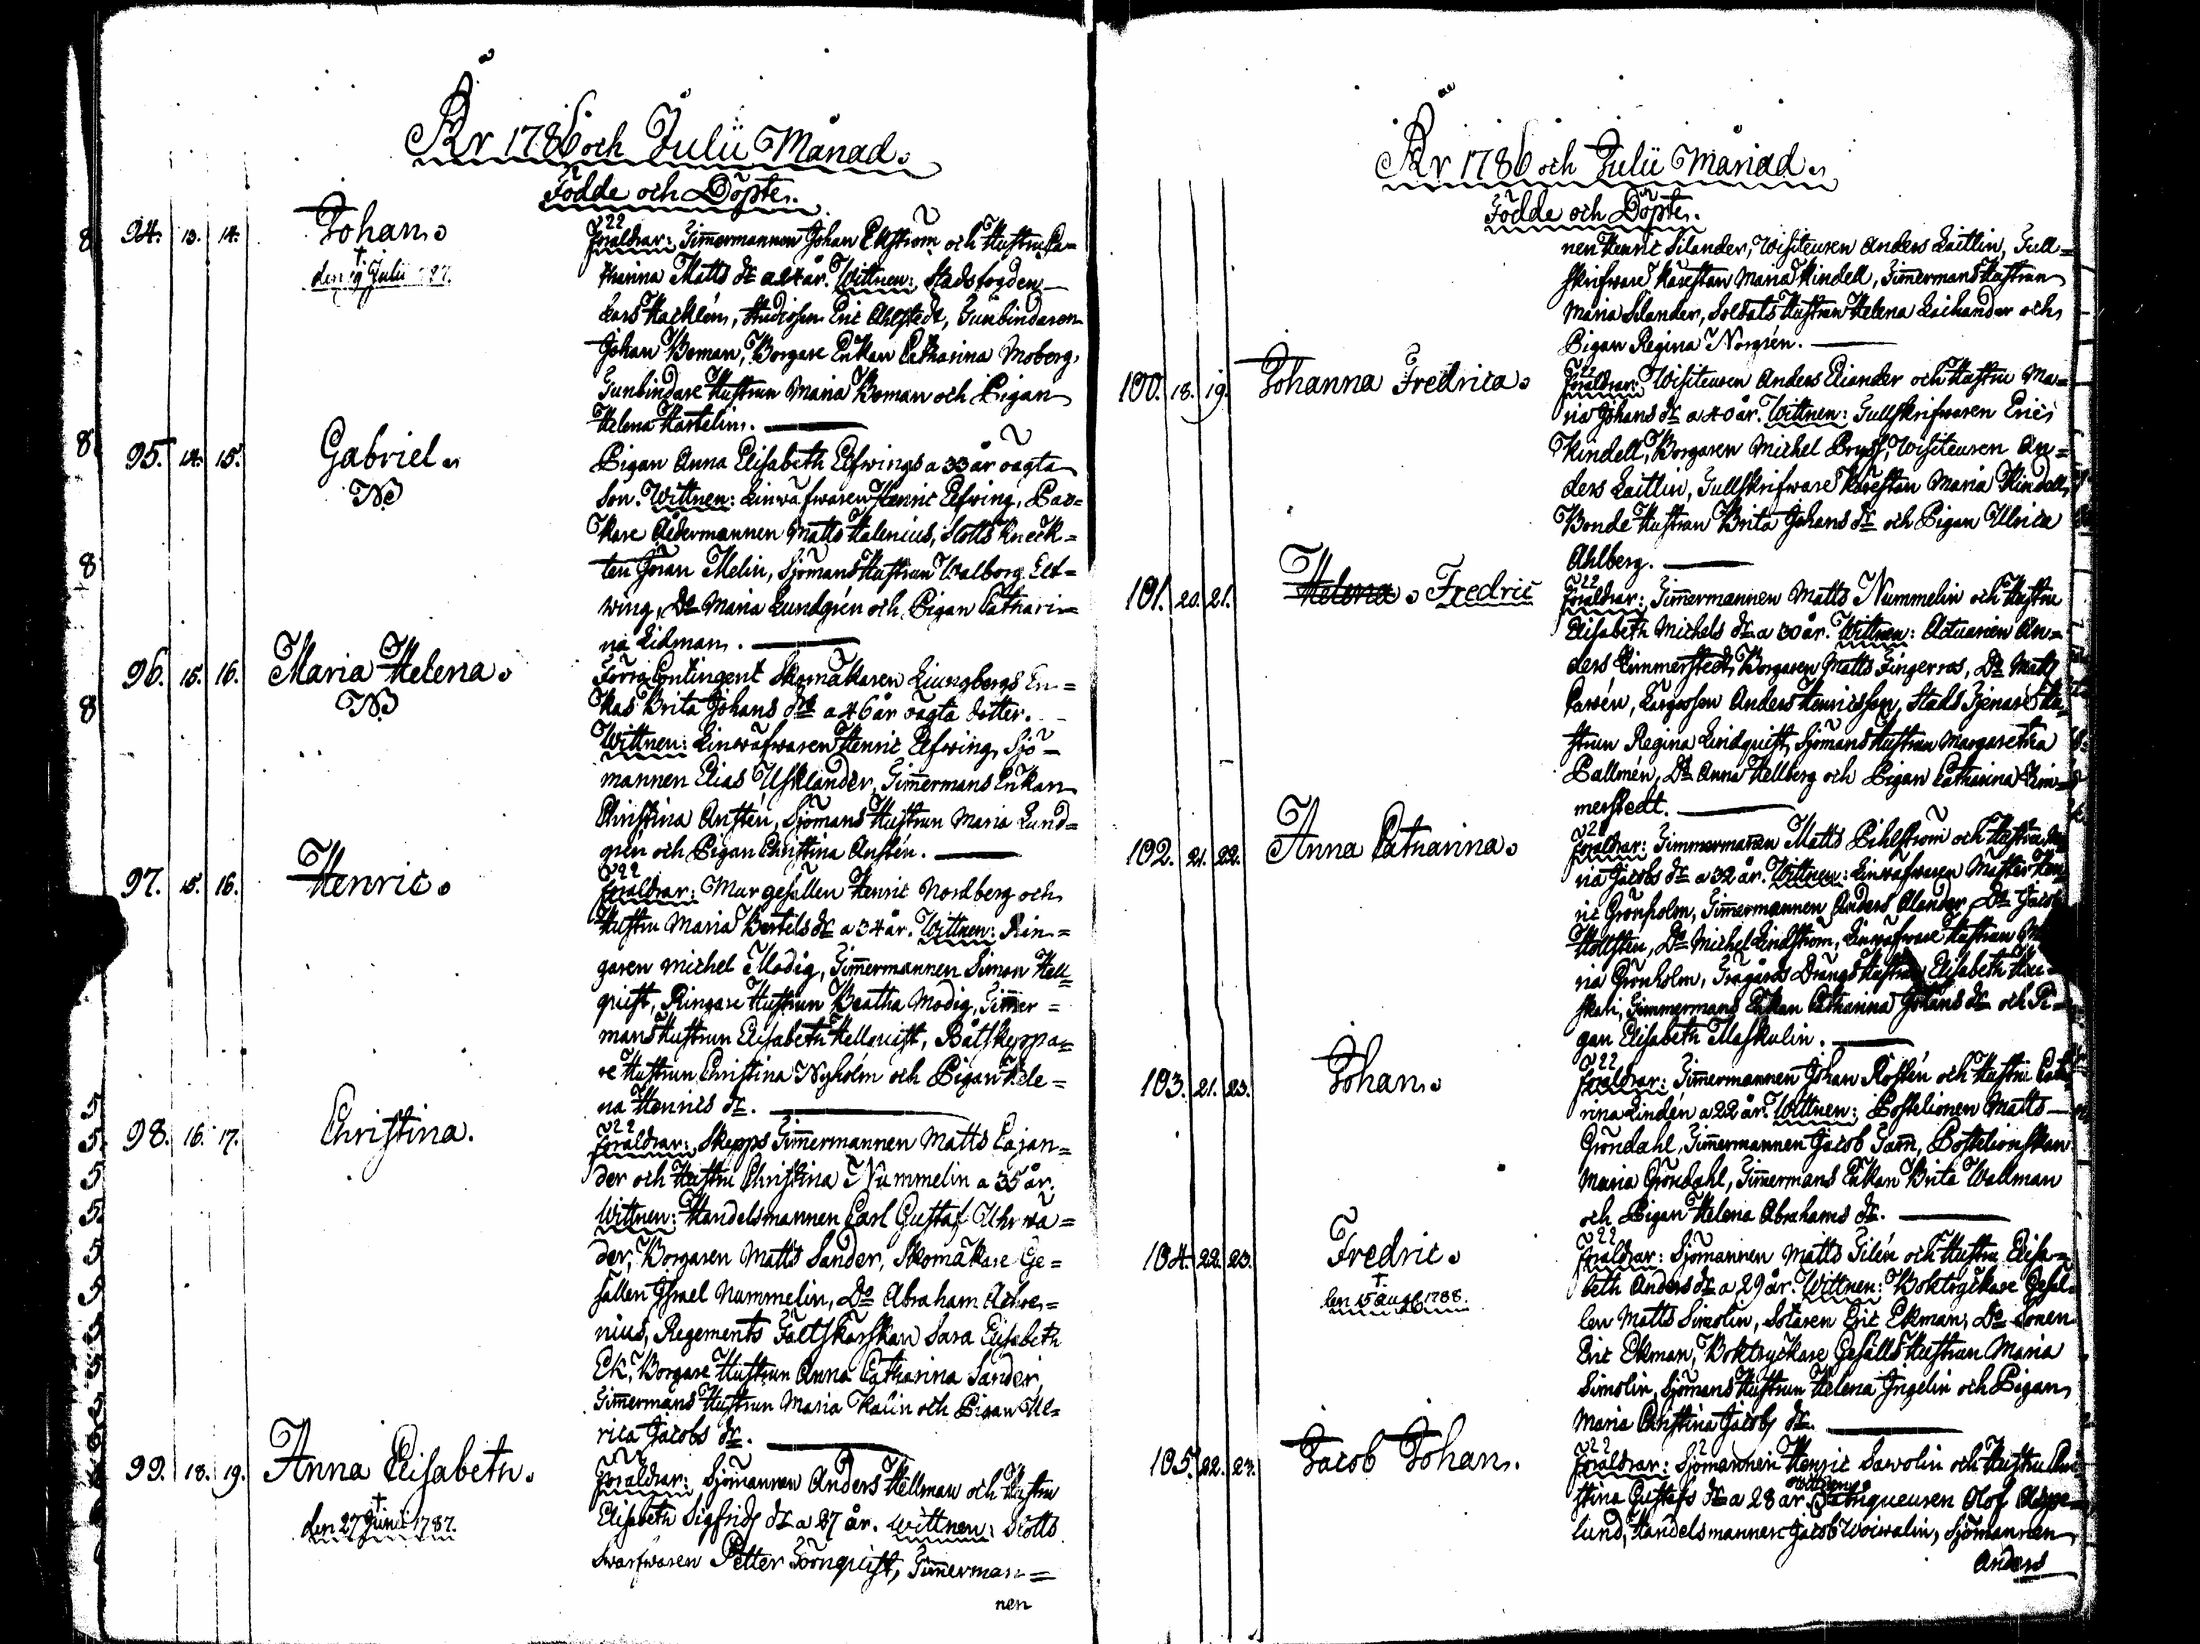 År 1786 och Julii Månad.
Födde och Döpte.
94. 13. 14. Johan.
†
den 19 Julii 787.
Föräldrar: Timmermannen Johan Ekström och Hustru Ca=
tharina Matts dr a 24 år. Wittnen: Stadsfogden
Lars Hacklén, Studiosen Eric Ahlstedt, Tunbindaren
Johan Boman, Borgare Enkan Catharina Moberg,
Tunbindare Hustrun Maria Boman och Pigan
Helena Hartelin.
95. 14. 15. Gabriel.
NB
Pigan Anna Elisabeth Elfwings a 33 år oägta
Son. Wittnen: Linwäfwaren Henric Elfwing, Bar=
kare Åldermannen Matts Halenius, Slotts Kneck=
ten Jöran Melin, Sjömans Hustrun Walborg Elf=
wing, Do Maria Lundgrén och Pigan Catharin=
na Lidman.
96. 15. 16. Maria Helena.
NB
Förra Contingent Skomakaren Liungbergs En=
kas Brita Johans drs a 46 år oägta dotter.
Wittnen: Linwäfwaren Henric Elfwing, Sjö=
mannen Elias Usklander, Timmermans Enkan
Christina Austén, Sjömans Hustrun Maria Lund=
grén och Pigan Christina Austén.
97. 15. 16. Henric.
Föräldrar: Murgesällen Henric Nordberg och
Hustru Maria Bertils dr a 34 år. Wittnen: Rin=
garen Michel Modig, Timmermannen Simon Hell=
quist, Ringare Hustrun Beatha Modig, Timmer=
mans Hustrun Elisabeth Hellquist, Båtskeppa=
re Hustrun Christina Nyholm och Pigan Hele=
na Henrics dr.
98. 16. 17. Christina.
Föräldrar: Skepps Timmermannen Matts Cajan=
der och Hustru Christina Nummelin a 35 år.
Wittnen: Handelsmannen Carl Gustaf Uhrwä=
der, Borgaren Matts Sander, Skomakare Ge=
sällen Israel Nummelin, Do Abraham Achre=
nius, Regements Fältskärskan Sara Elisabeth
Ek, Borgare Hustrun Anna Catharina Sander,
Timmermans Hustrun Maria Kalin och Pigan Ul=
rica Jacobs dr.
99. 18. 19. Anna Elisabeth.
†
den 27 Junii 1787.
Föräldrar: Sjömannen Anders Hellman och Hustru
Elisabeth Sigfrids dr a 27 år. Wittnen: Slotts
Swarfwaren Petter Törnquist, Timmerman=
nen
År 1786 och Julii Månad.
Födde och Döpte.
nen Henric Silander, Wisiteuren Anders Laitlin, Tull=
skrifware Kärestan Maria Kindell, Timmermans Hustrun
Maria Silander, Soldats Hustrun Helena Laihander och
Pigan Regina Norgrén.
100. 18. 19. Johanna Fredrica.
Föräldrar: Wisiteuren Anders Eliander och Hustru Ma=
ria Johans dr a 40 år. Wittnen: Tullskrifwaren Eric
Kindell, Borgaren Michel Pryss, Wisiteuren An=
ders Laitlin, Tullskrifware Kärestan Maria Kindell,
Bonde Hustrun Brita Johans dr och Pigan Ulrica
Ahlberg.
101. 20. 21. Helena. Fredric
Föräldrar: Timmermannen Matts Nummelin och Hustru
Elisabeth Michels dr a 30 år. Wittnen: Actuarien An=
ders Zimmerstedt, Borgaren Matts Fingerros, Do Matts
Carén, Anders Henricsson, Stads Tjenare Hu=
strun Regina Lindquist, Sjömans Hustrun Margaretha
Pallmén, Do Anna Hellberg och Pigan Catharina Zim=
merstedt.
102. 21. 22. Anna Catharina.
Föräldrar: Timmermannen Matts Pihlström och Hustru
ria Jacobs dr a 32 år. Wittnen: Linwäfwaren Mäster Hen=
ric Grönholm, Timmermannen Anders Alander, Do Jacob
Hollsten, Do Michel Lindström, Linwäfware Hustrun Ma=
ria Grönholm, Trägårds Drängs Hustrun Elisabeth
skali, Timmermans Enkan Catharina Johans dr och Pi=
gan Elisabeth Maskulin.
103. 21. 23. Johan.
Föräldrar: Timmermannen Johan Roslén och Hustru Catha
rina Lindén a 22 år. Wittnen: Postelionen Matts
Gröndahl, Timmermannen Jacob Tam, Postelionskan
Maria Gröndahl, Timmermans Enkan Brita Wallman
och Pigan Helena Abrahams dr.
104. 22. 23. Fredric.
†
den 15 aug. 1788.
Föräldrar: Sjömannen Matts Silén och Hustru Elisa=
beth Anders dr a 29 år. Wittnen: Boktryckare Gesäl=
len Matts Simolin, Sotaren Eric Ekman, Do Sonen
Eric Ekman, Boktryckare Gesälls Hustrun Maria
Simolin, Sjömans Hustrun Helena Ingelin och Pigan
Maria Christina Jacobs dr.
105. 22. 23. Jacob Johan.
Föräldrar: Sjömannen Henric Sawolin och Hustru Chri
stina Gustafs dr a 28 år. Wittnen: Olof
lund, Handelsmannen Jacob Woiwalin, Sjömannen
Anders